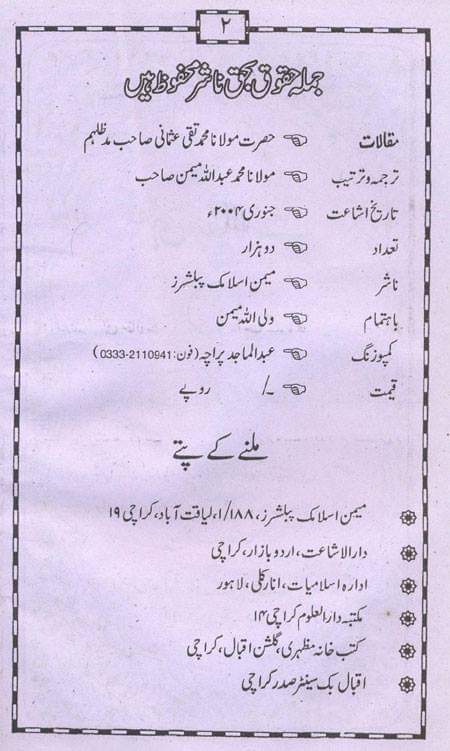 ۲
جملہ حقوق بحق ناشر محفوظ ہیں
مقالات ☜ حضرت مولانا محمد تقی عثمانی صاحب مدظلہم
ترجمہ و ترتیب ☜ مولانا محمد عبداللہ میمن صاحب
تاریخ اشاعت ☜ جنوری ۲۰۰۴ء
تعداد ☜ دو ہزار
ناشر ☜ میمن اسلامک پبلشرز
باہتمام ☜ ولی اللہ میمن
کمپوزنگ ☜ عبدالماجد پراچہ (فون: 0333-2110941)
قیمت ☜ /۔ روپے
ملنے کے پتے
میمن اسلامک پبلشرز، ۱۸۸/۱، لیاقت آباد، کراچی ۱۹
دارالاشاعت، اردو بازار، کراچی
ادارہ اسلامیات، انارکلی، لاہور
مکتبہ دارالعلوم کراچی ۱۴
کتب خانہ مظہری، گلشن اقبال، کراچی
اقبال بک سینٹر صدر کراچی